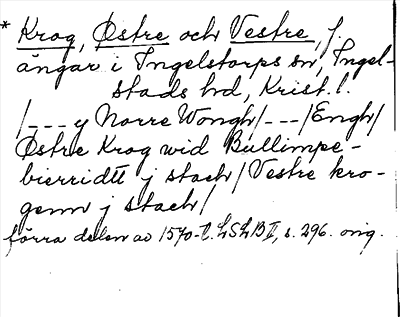 * Krog, Østre och Vestre, f.
ängar i Ingelstorps sn, Ingel-
stads hd, Krist. l.
/--- y Norre Wongh/---/Engh/
Østre Krog wid Bullimpe-
bierridtt j stach/Vestre kro-
genn j stach/
förra delen av 1570-t. LSLB II, s. 296. orig.